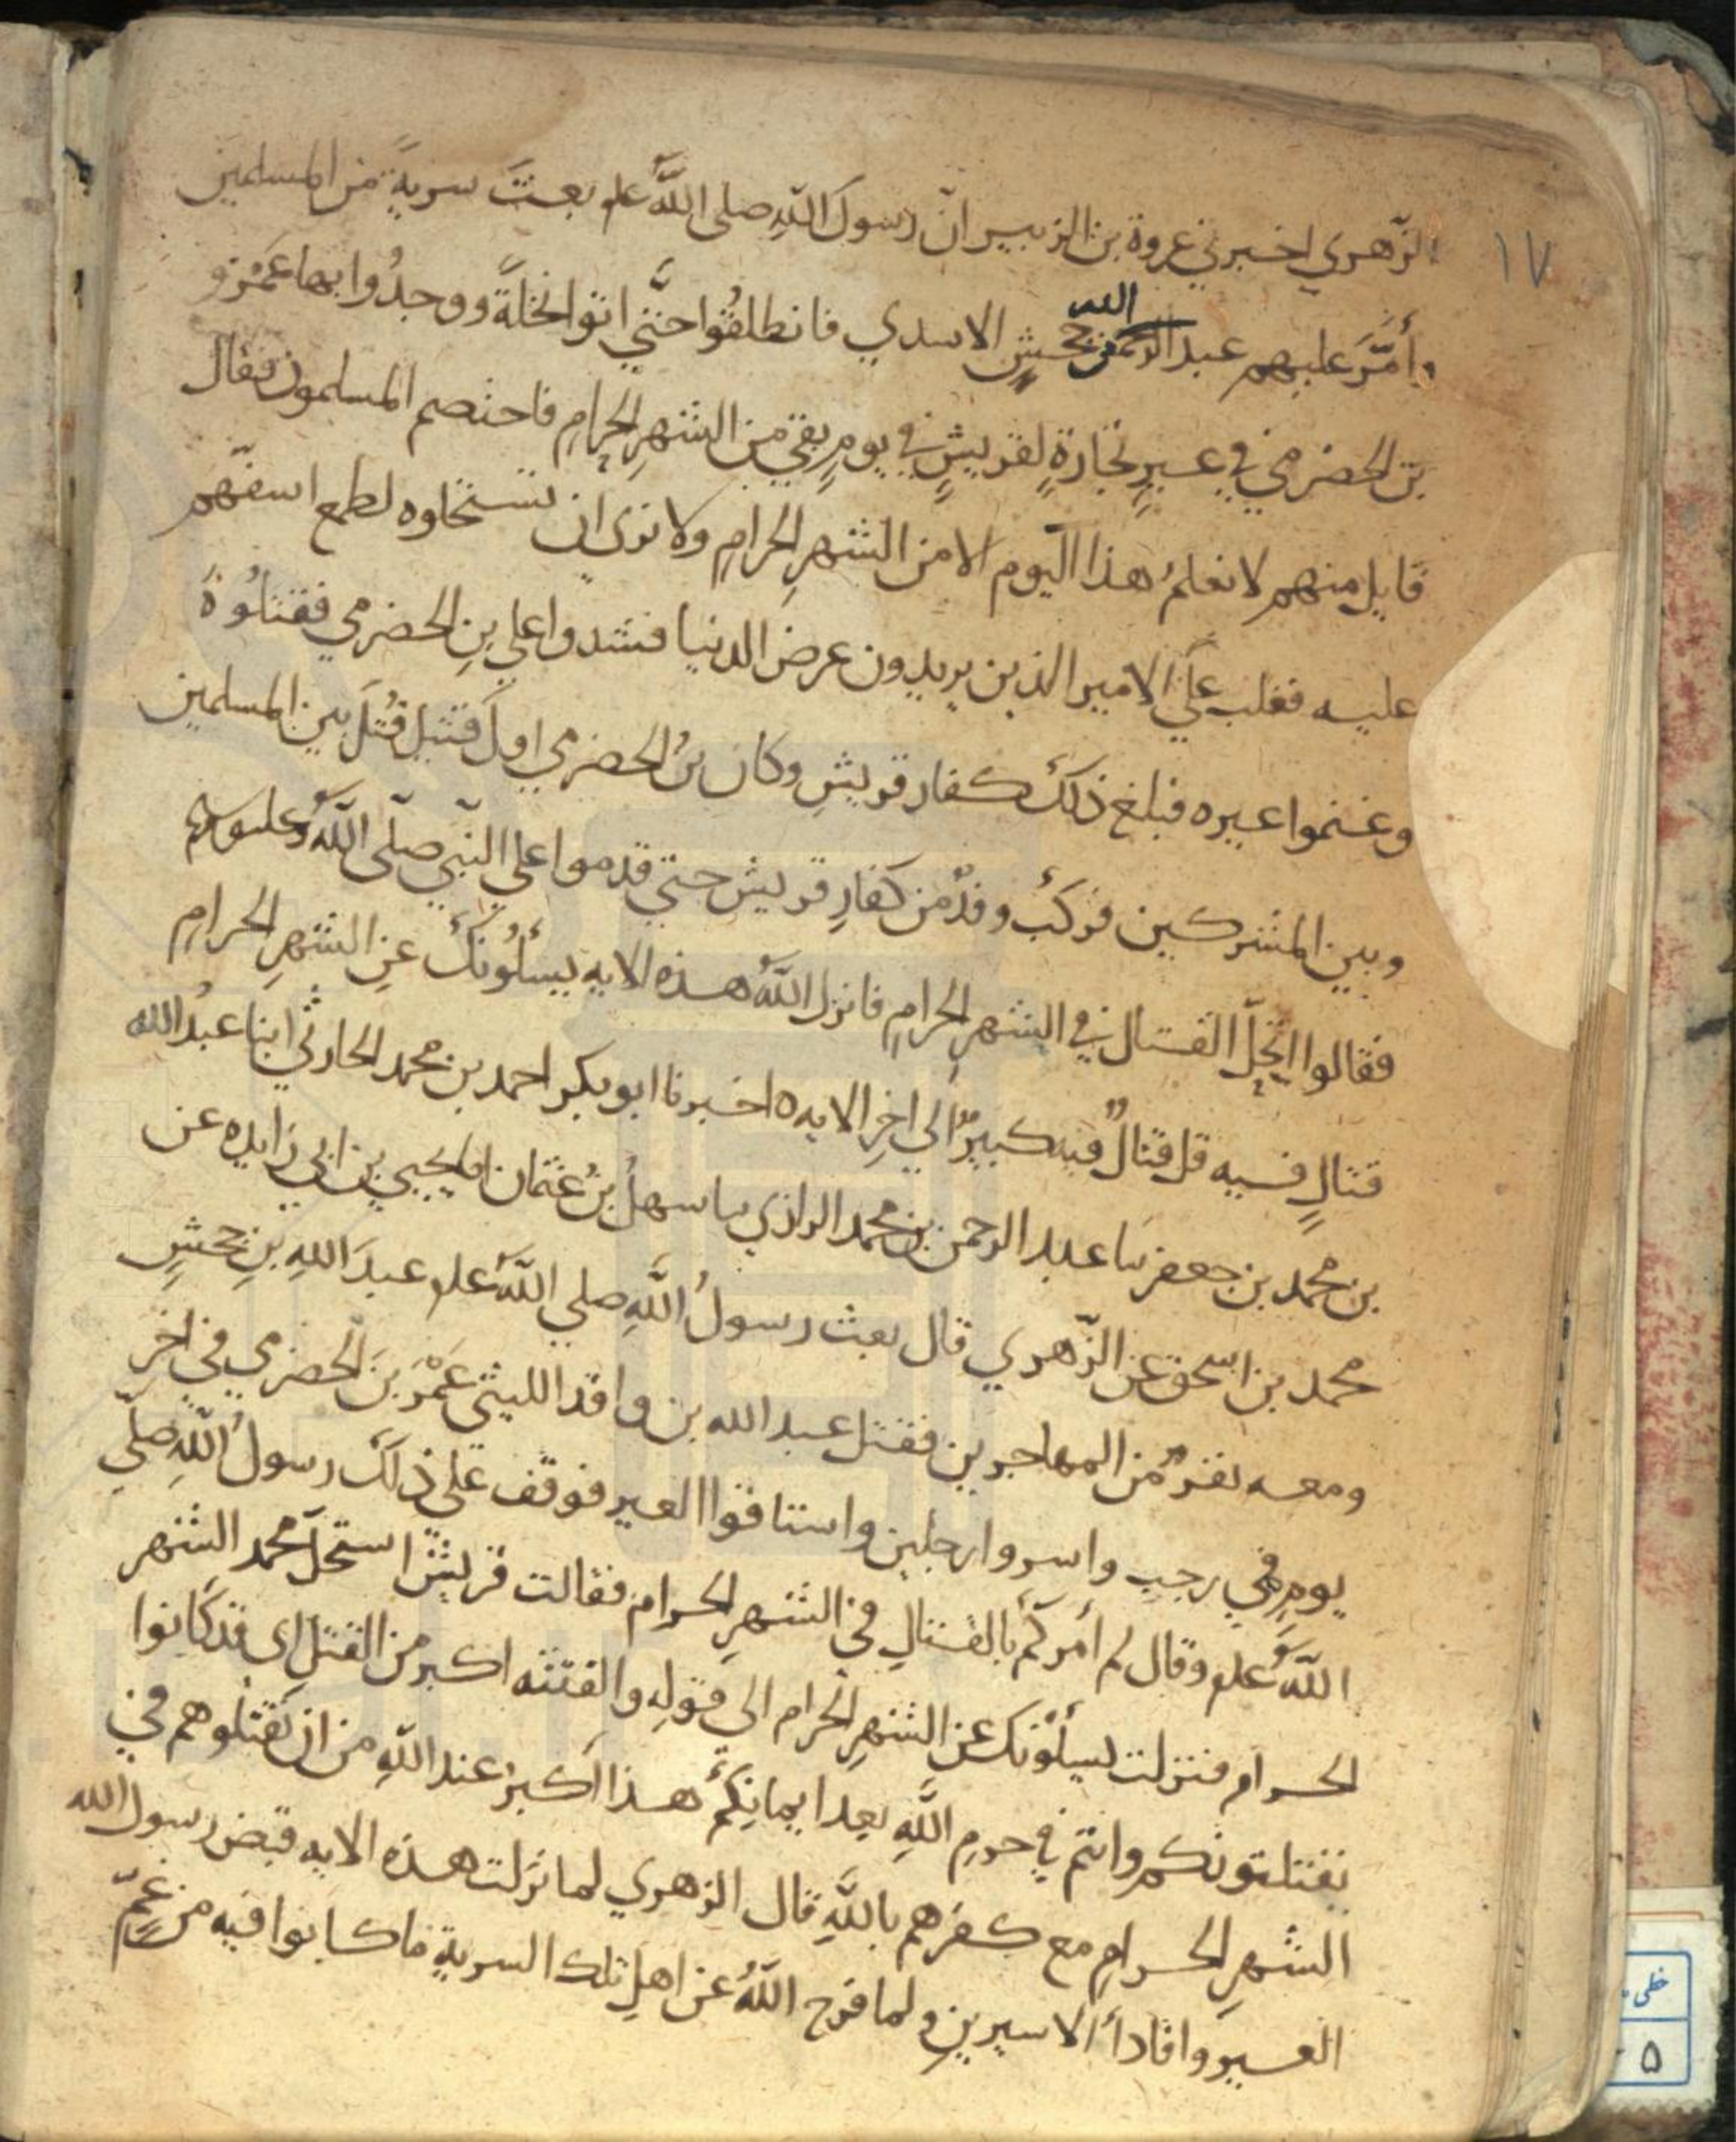 ١٧
الزّهري اخبرني عروة بن الزبير انّ رسولَ اللهِ صلى اللهُ علم بعثَ سريةً من المسلمين
وأمَّرَ عليهم عبد الرحمن بن جحشٍ الاسدي فانطلقُوا حتّي اتوا نخلةً ووجدُوا بها عَمْرَو
الله
بن الحضرمي في عيرِ تجارةٍ لقريشٍ في يومٍ بقي من الشهرِ الحرامِ فاختصم المسلمون فقال
قايل منهم لا نعلمُ هذا اليوم الا من الشهرِ الحرامِ ولا نرى ان تستحلوه لطمع اسفتهم
عليه فغلب علَي الامير الذين يريدون عرض الدنيا فشدوا علي بنِ الحضرمي فقتلُوهُ
وغنموا عيره فبلغ ذلكَ كفار قريشٍ وكان بنُ الحضرمي اولَ قتيل قُتلَ بين المسلمين
وبين المشركين فركبُ وفدٌ من كفارِ قريش حتي قدموا علي النّبي صلّى اللهُ عليه وسلم
فقالوا اتحِلّ القتال في الشهرِ الحرامِ فانزل اللهُ هذه الايه يسئلُونكَ عنِ الشهرِ الحرامِ
قتالٍ فيه قل قتالٌ فيه كبيرٌ الي اخرِ الايه ه اخبرنا ابو بكر احمد بن محمد الحارثي ابنا عبدُ الله
بن محمد بن جعفر ثنا عبد الرحمن بن محمد الرازي ثنا سهلُ بنُ عثمان نا يحيي بن ابي زايده عن
محمد بن اسحق عن الزّهري قال بعث رسولُ اللهِ صلي اللهُ علم عبدَ اللهِ بنِ جحشٍ
ومعه نفرٌ من المهاجرين فقتل عبد الله بن واقد الليثي عَمْرَ بنَ الحضرمي في اخرِ
يومٍ في رجبٍ واسروا رجلين واستاقوا العير فوقف علي ذلكَ رسولُ اللهِ صلّي
اللهُ علم وقال لم أمركمُ بالقتالِ في الشهرِ الحرام فقالت قريشٌ استحلَّ محمد الشهر
الحرام فنزلت يسئلونك عن الشهرِ الحرام الي قولِه والفتنه اكبر من القتلِ اي قد كانوا
يفتنونكم وانتم في حرمِ اللهِ بعد ايمانِكمُ هذا اكبرُ عند اللهِ من ان تقتلوهم في
الشهرِ الحرامِ مع كفرِهم باللهِ قال الزهري لما نزلت هذه الايه قبض رسول الله
العير وافادا الاسيرينِ ولما فرج اللهُ عن اهلِ تلك السريةِ ما كانوا فيه من غمٍّ
خطی
۵